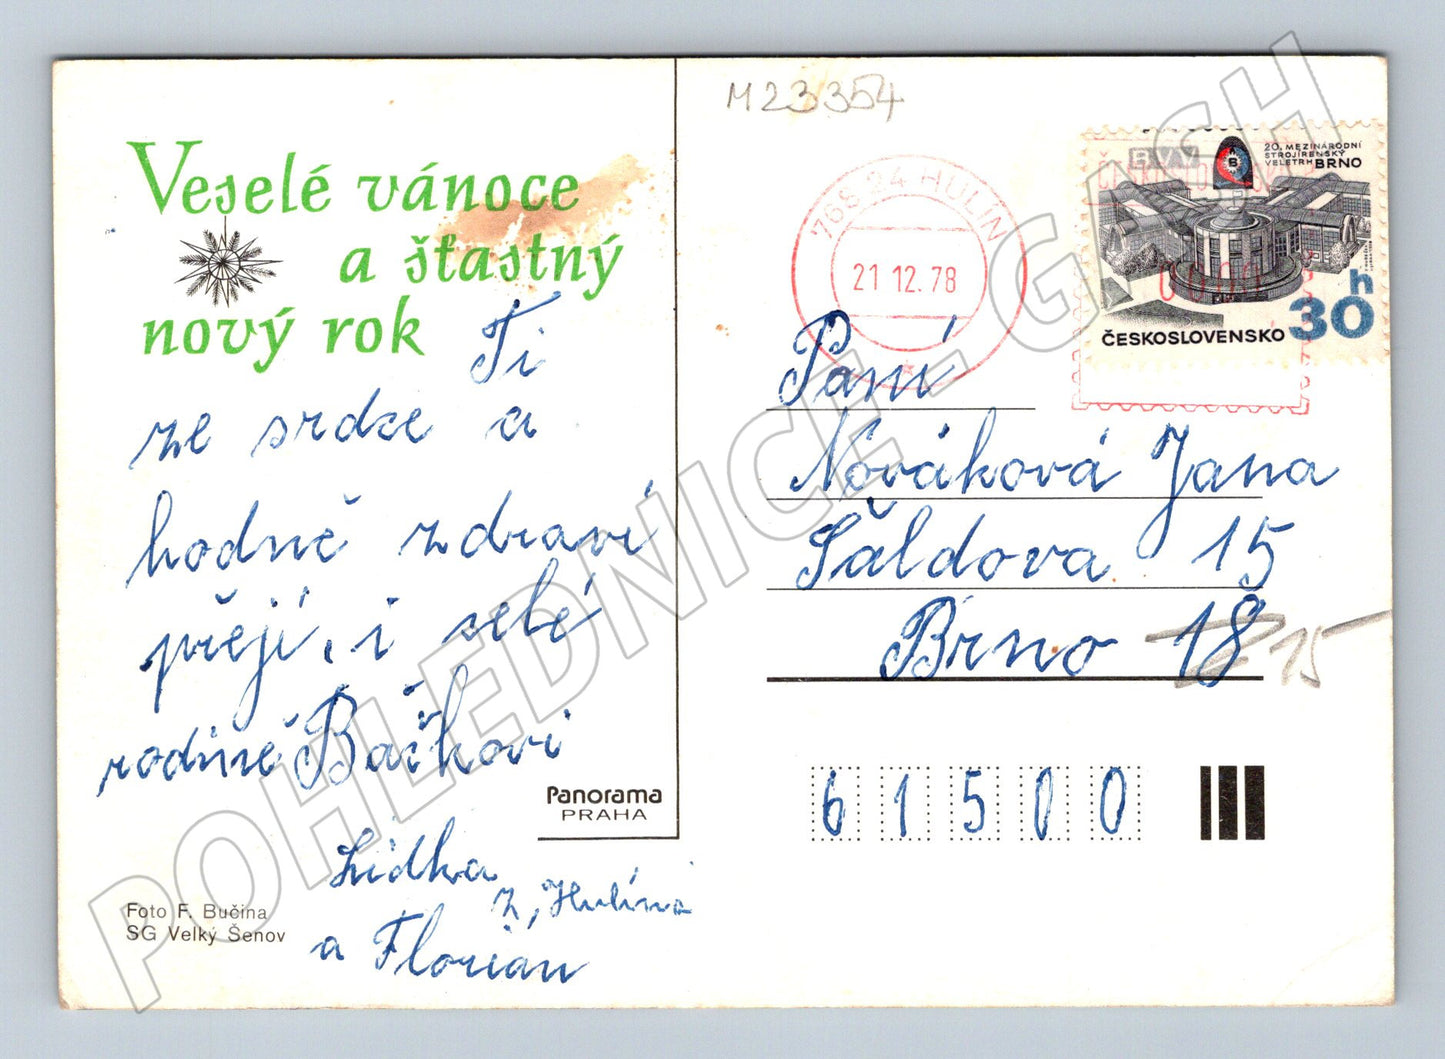 M23354
Veselé vánoce
a šťastný
nový rok
Ti
ze srdce a
hodně zdraví
přejí, i celé
rodině Bačkovi
Lidka
z, Hulína
a Florian
Panorama
PRAHA
Foto F. Bučina
SG Velký Šenov
768 24 HULÍN
21 12. 78
20. MEZINÁRODNÍ
STROJÍRENSKÝ
VELETRH BRNO
ČESKOSLOVENSKO
30h
Paní
Nováková Jana
Šaldova 15
Brno 18 15
61500
POHLEDNICE - GASH